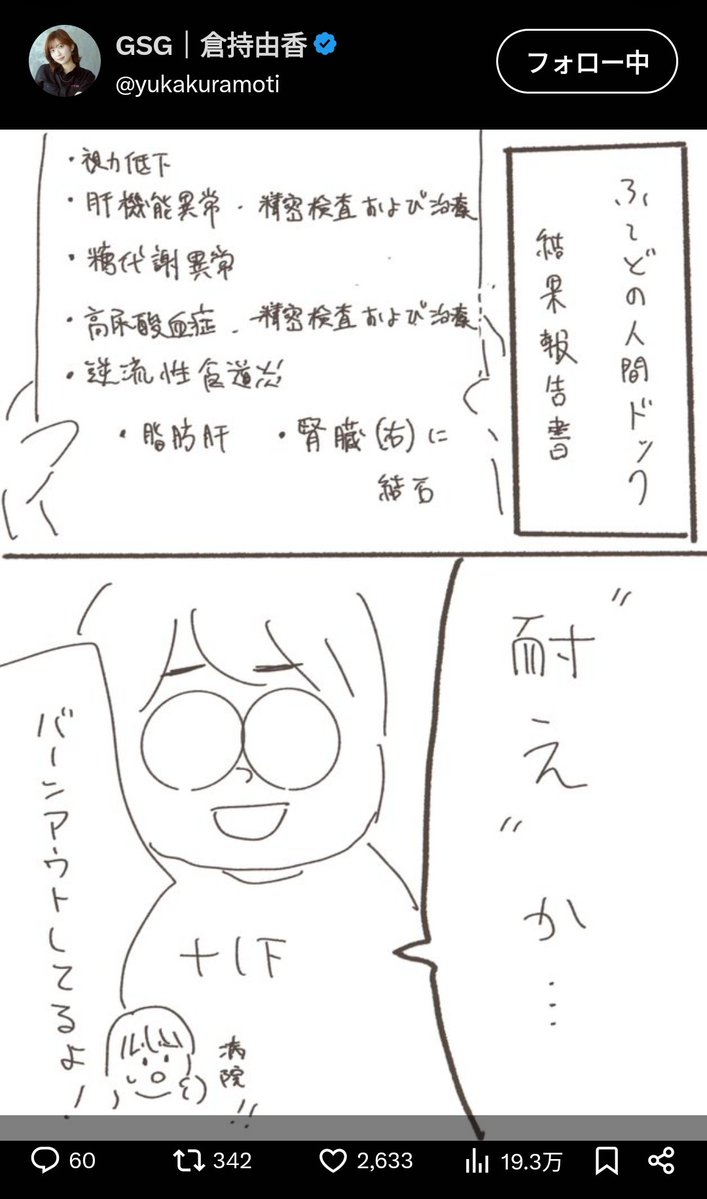 GSG｜倉持由香
@yukakuramoti
フォロー中
ふとどの人間ドック
結果報告書
・視力低下
・肝機能異常 - 精密検査および治療
・糖代謝異常
・高尿酸血症 - 精密検査および治療
・逆流性食道炎
・脂肪肝 ・腎臓(右)に
結石
"耐え"か…
バーンアウトしてるよ!
病院!!
60
342
2,633
19.3万